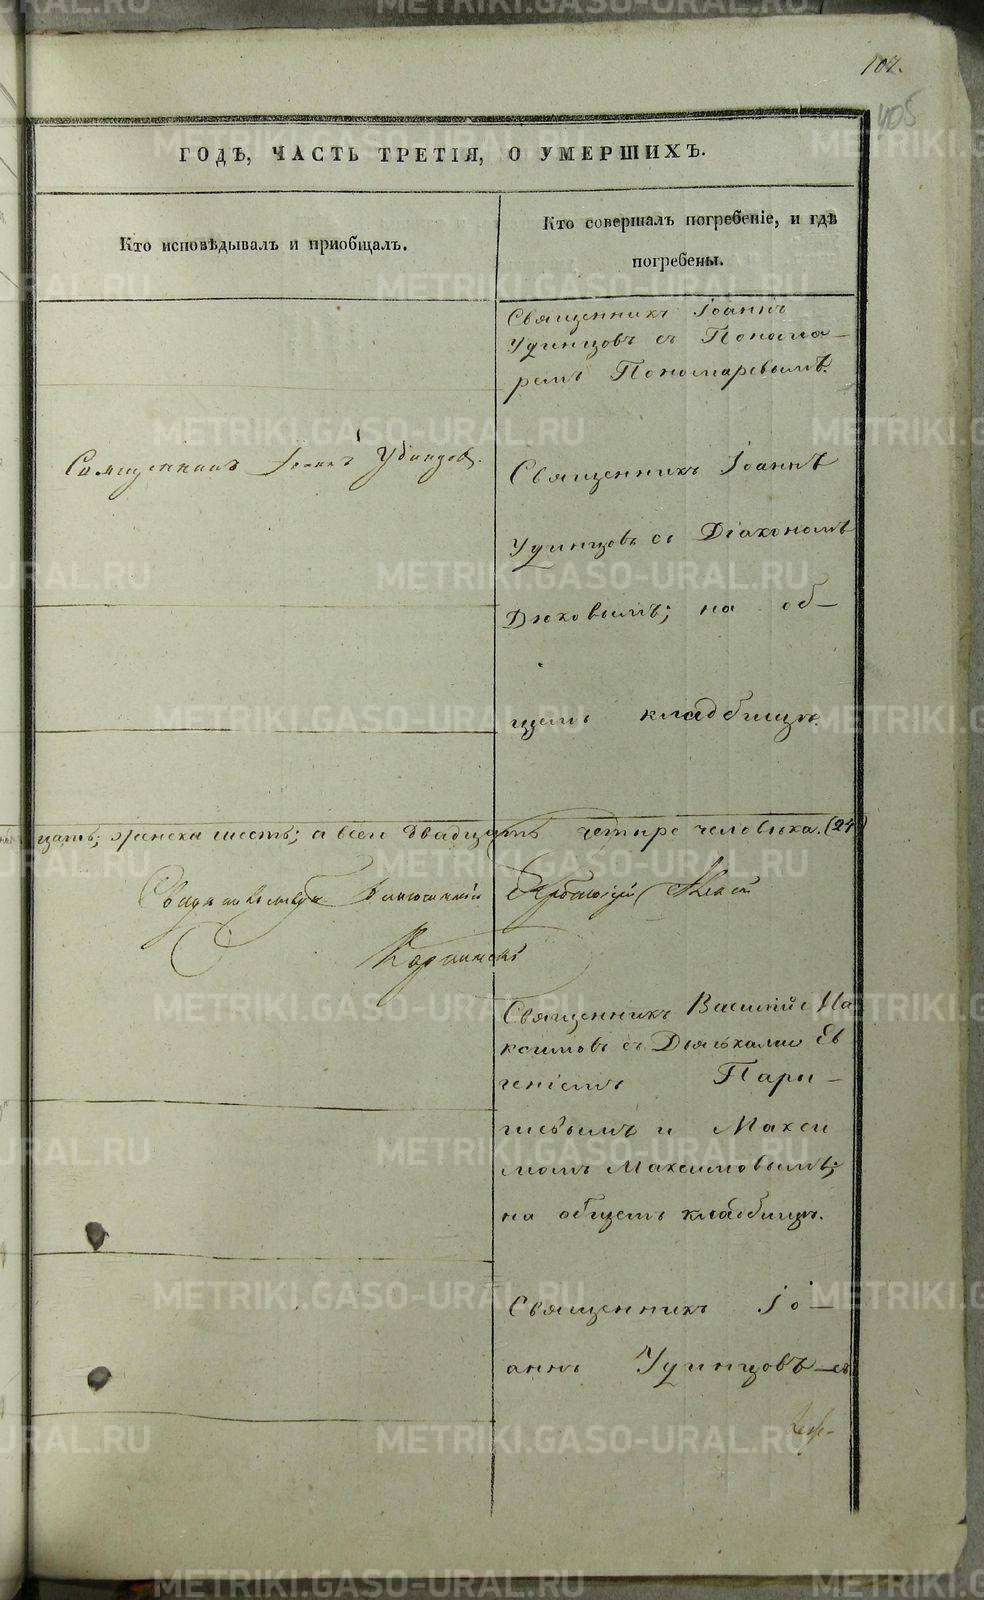 107.
405
ГОДѢ, ЧАСТЬ ТРЕТІЯ, О УМЕРШИХЪ.
Кто исповѣдывалъ и пріобщалъ.
Кто совершалъ погребеніе, и гдѣ
погребены.
Священникъ Іоаннъ
Удинцовъ съ Понома-
ремъ Пономаревымъ.
Священникъ Іоаннъ Удинцов.
Священникъ Іоаннъ
Удинцовъ съ Діакономъ
Дюковымъ; на об-
щемъ кладбищѣ.
цать; женска шесть; а всего двадцать четыре человѣка. (24)
Священникъ Василій Ма
ксимовъ съ Дьячками Ев
геніемъ Пари-
шевымъ и Макси
момъ Максимовымъ;
на общемъ кладбищѣ.
Священникъ Іо-
аннъ Удинцовъ съ
METRIKI.GASO-URAL.RU